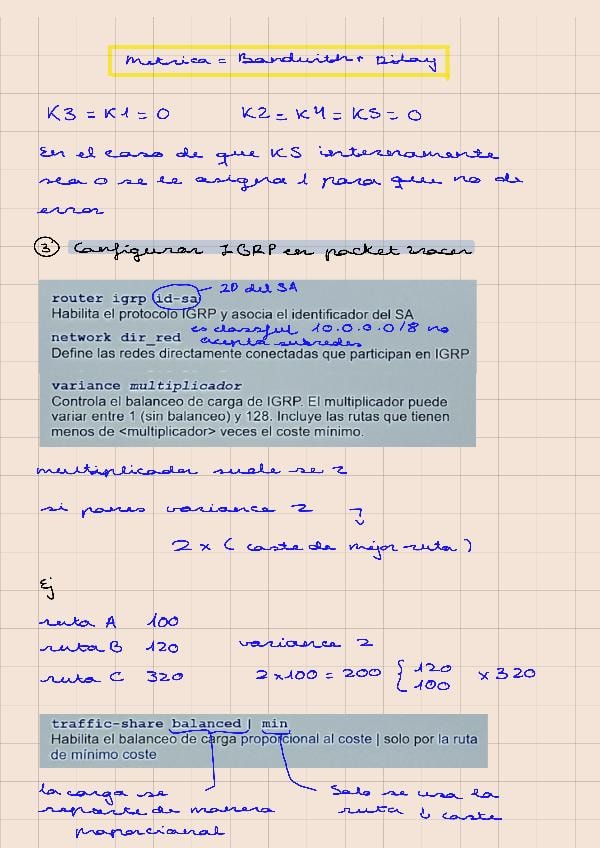 Metrica = Bandwith + Delay
K3 = K1 = 0 K2 = K4 = K5 = 0
En el caso de que K5 internamente
sea 0 se le asigna 1 para que no de
error
3 Configurar IGRP en packet tracer
router igrp id-sa ID del SA
Habilita el protocolo IGRP y asocia el identificador del SA
es classful 10.0.0.0/8 no
network dir_red acepta subredes
Define las redes directamente conectadas que participan en IGRP
variance multiplicador
Controla el balanceo de carga de IGRP. El multiplicador puede
variar entre 1 (sin balanceo) y 128. Incluye las rutas que tienen
menos de <multiplicador> veces el coste mínimo.
multiplicador suele se 2
si pones variance 2
2 x ( coste de mejor ruta )
Ej
ruta A 100
ruta B 120 variance 2
ruta C 320 2x100 = 200 { 120 100 x 320
traffic-share balanced | min
Habilita el balanceo de carga proporcional al coste | solo por la ruta
de mínimo coste
la carga se Solo se usa la
reparte de manera ruta ↓ coste
proporcional